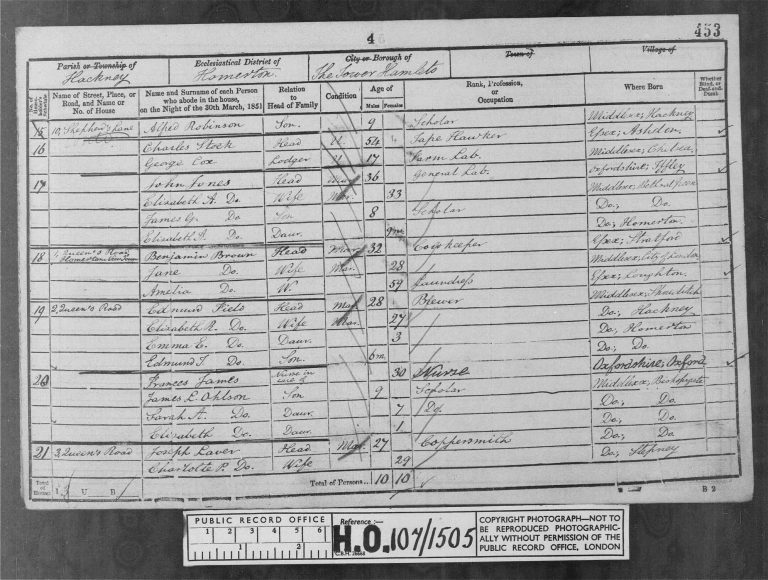 453
4
Parish or Township of
Hackney
Ecclesiastical District of
Homerton
City or Borough of
The Tower Hamlets
Town of
Village of
Name of Street, Place, or Road, and Name or No. of House
Name and Surname of each Person who abode in the house, on the Night of the 30th March, 1851
Relation to Head of Family
Condition
Age of
Males Females
Rank, Profession, or Occupation
Where Born
Whether Blind, or Deaf-and-Dumb
15 10, Stephen's Lane Alfred Robinson Son 9 Scholar Middlesex; Hackney
16 Charles Stock Head U 54 Tape Hawker Essex; Ashden
George Cox Lodger U 17 Farm Lab. Middlesex; Chelsea
17 John Jones Head Mar 36 General Lab. Oxfordshire; Iffley
Elizabeth A. Do Wife Mar. 33 Middlesex; Bethnal Green
James G. Do Son 8 Scholar Do; Do.
Elizabeth Do Daur. 9m Do; Homerton
18 1, Queen's Road Benjamin Brown Head Mar 32 Cowkeeper Essex; Stratford
Jane Do. Wife Mar. 28 Middlesex; City of London
Amelia Do W 59 Laundress Essex; Loughton
19 2, Queen's Road Edmund Head Mar 28 Brewer Middlesex; Shoreditch
Elizabeth R. Do. Wife Mar. 27 Do; Hackney
Emma E. Do. Daur. 3 Do; Homerton
Edmund T. Do. Son. 6m Do; Do
20 Frances James Nurse in care of 30 Nurse Oxfordshire; Oxford
James L. Ohlson Son 9 Scholar Middlesex; Bishopsgate
Sarah A. Do. Daur. 7 Do. Do; Do.
Elizabeth Do. Daur. 1 Do; Do.
21 3, Queen's Road Joseph Laver Head Mar 27 Coppersmith Do; Do.
Charlotte P. Do. Wife 29 Do; Stepney
Total of Houses 1 3 U B
Total of Persons... 10 10
B 2
PUBLIC RECORD OFFICE
1 2 3 4 5 6
1 2
Reference:-
H.O. 107/1505
COPYRIGHT PHOTOGRAPH—NOT TO
BE REPRODUCED PHOTOGRAPHIC-
ALLY WITHOUT PERMISSION OF THE
PUBLIC RECORD OFFICE, LONDON